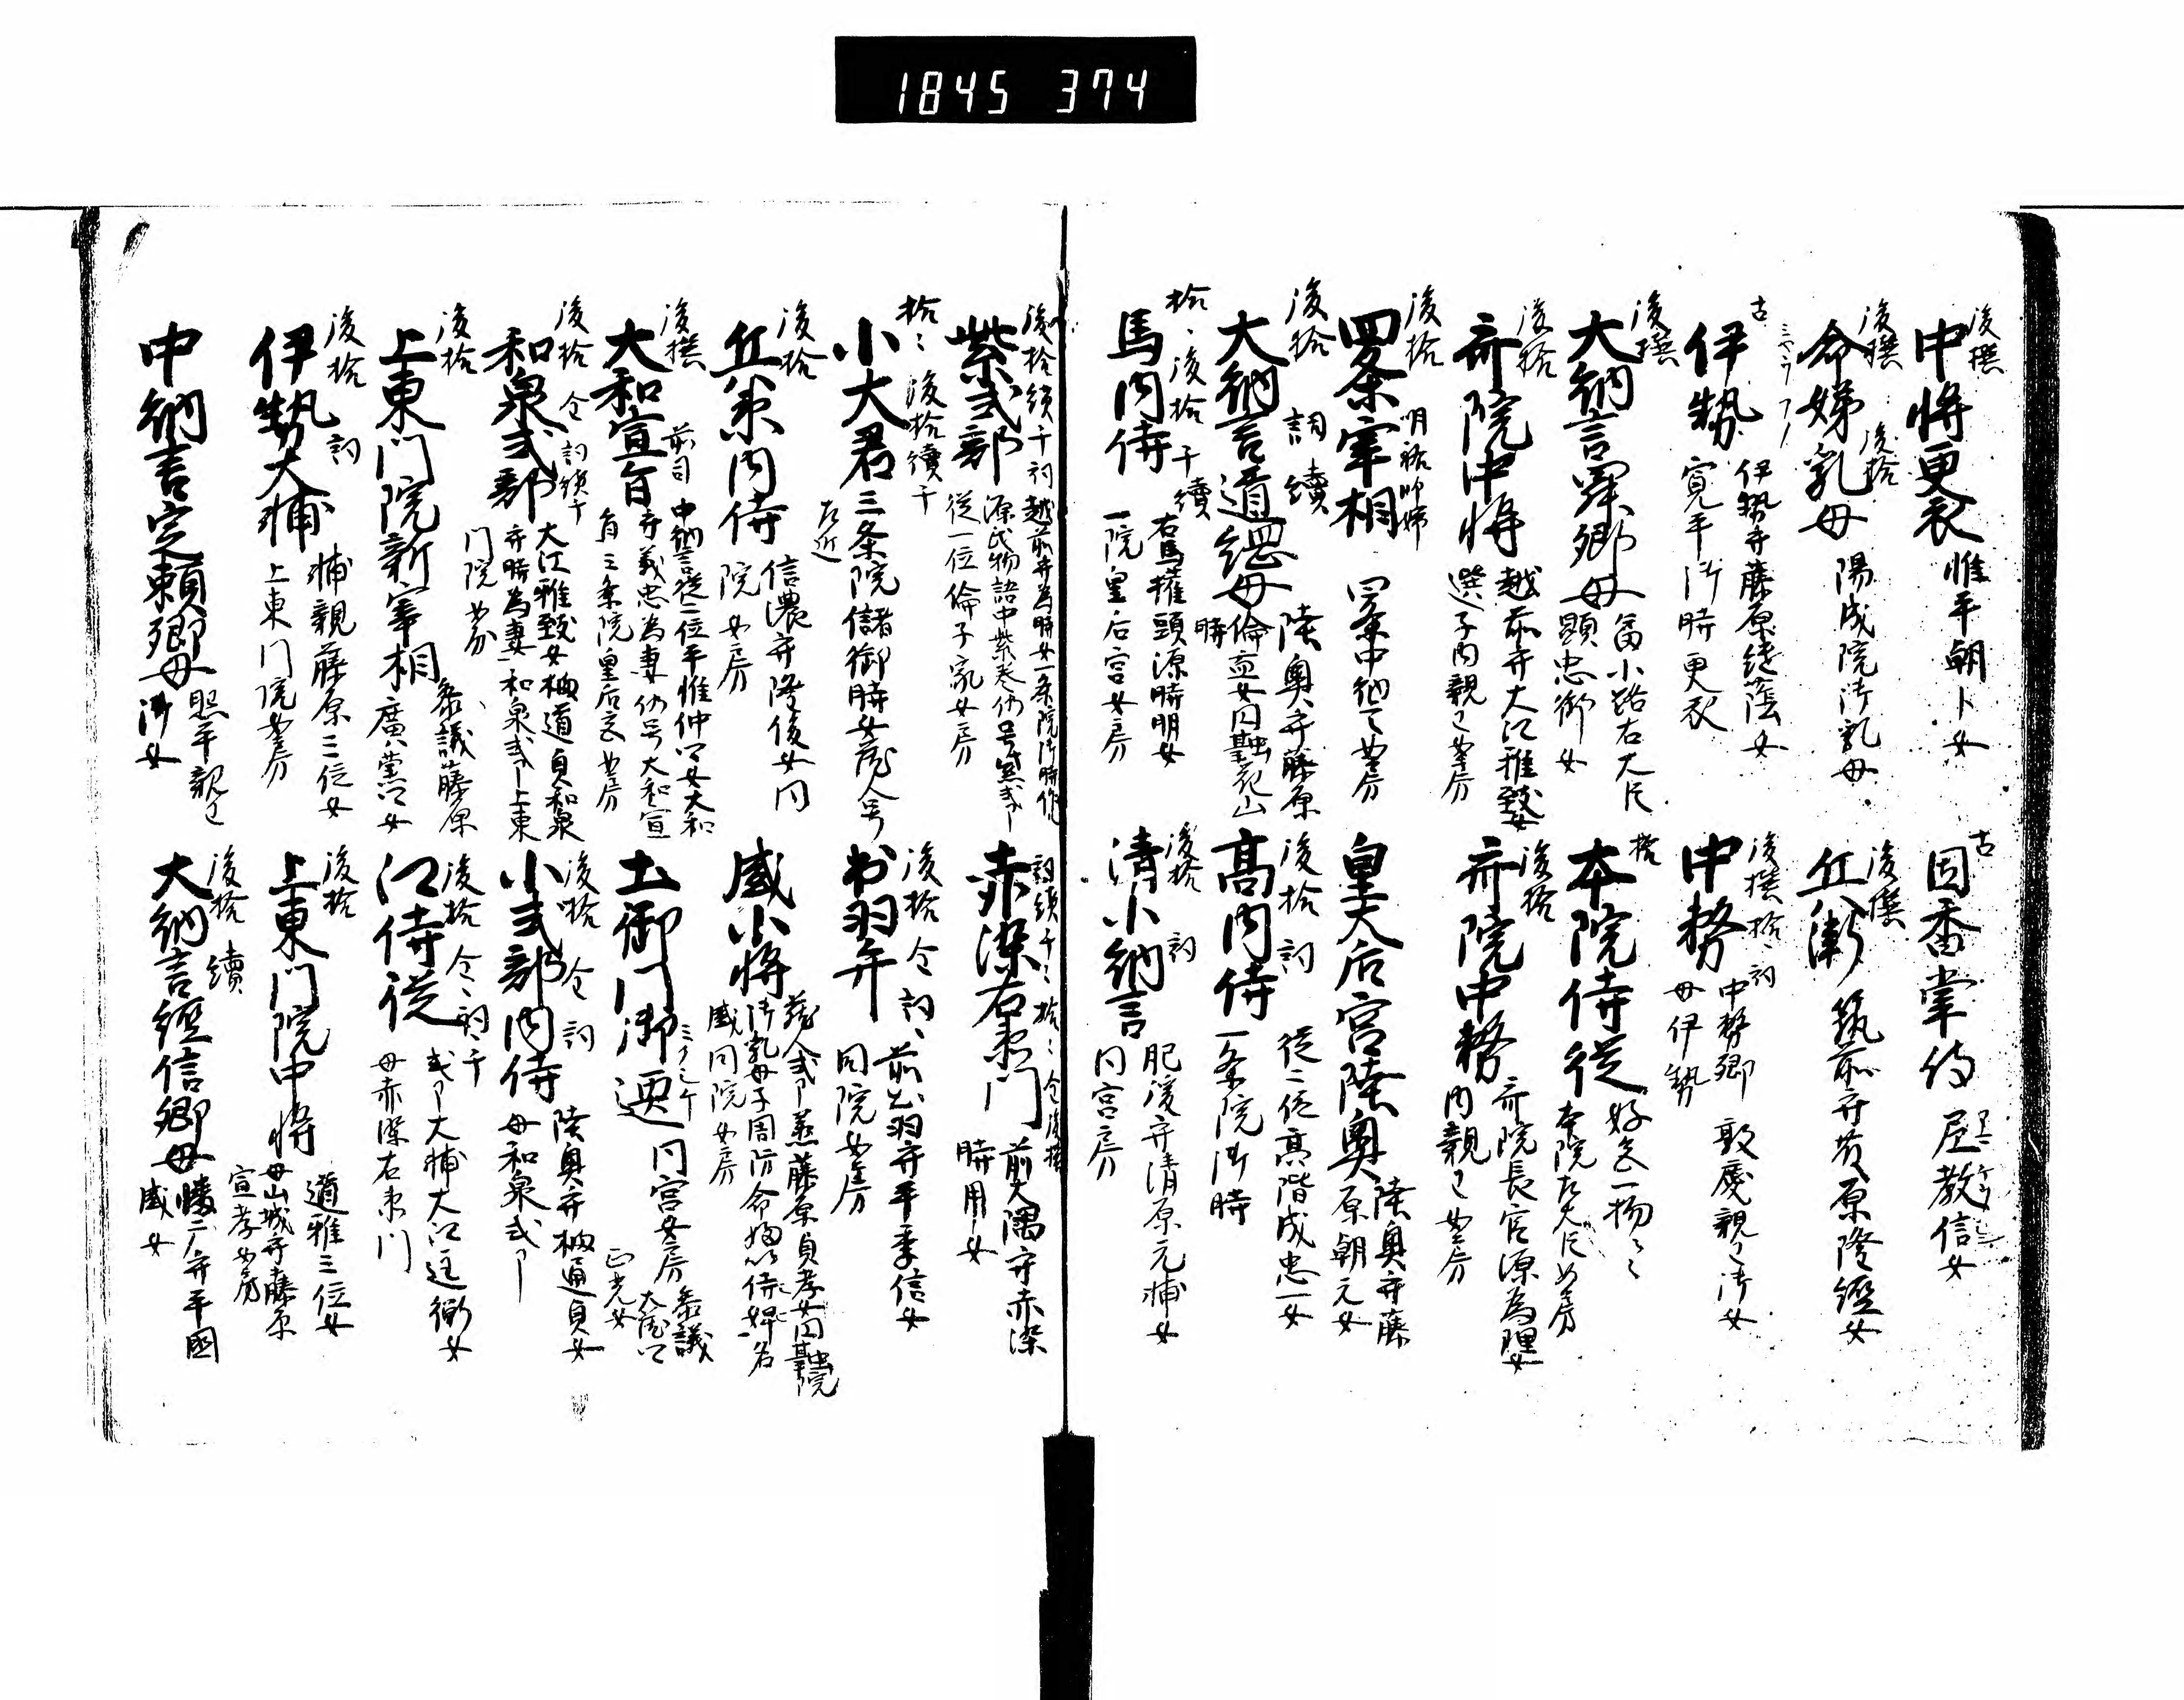 1845 374
後撰
中将更衣 惟平朝卜女
後撰 後拾
命婦乳母 陽成院御乳母
古
伊勢 伊勢守藤原継蔭女
寛平御時更衣
後撰
大納言 卿母 富小路右大臣
顕忠卿女
後拾
斎院中将 越前守大江雅致女
選子内親王女房
後拾
四条宰相 四条中納言女房
後拾 詞 續
大納言道綱母 陸奥守藤原
倫寧女 円融花山
時
拾、後拾 千 續
馬内侍 右馬権頭源時明女
一院皇后宮女房
古
因香掌侍 尼敬信女
後撰
兵衛 筑前守藤原隆經女
後撰 拾、詞
中務 中務卿敦慶親王御女
母伊勢
拾
本院侍従 好色一物也
本院左大臣女房
後拾
斎院中務 斎院長官源為理女
内親王女房
皇大后宮陸奥 陸奥守藤
原朝元女
後拾 詞
高内侍 従二位高階成忠女
一条院御時
後拾 詞
清小納言 肥後守清原元輔女
同宮女房
後拾 續 千 詞
紫式部 越前守為時女一条院御時作
源氏物語中紫巻仍号紫式卩
従一位倫子家女房
拾、後拾 續 千
小大君 三条院儲御時女蔵人号
左近
後拾
兵衛内侍 信濃守隆俊女同
院女房
後撰
大和宣旨 前司 中納言従二位平惟仲女大和
守義忠為妻仍号大和宣
旨三条院皇后宮女房
後拾 金 詞 續 千
和泉式部 大江雅致女 橘道貞和泉
守時為妻 和泉式卩上東
門院女房
後拾
上東門院新宰相 参議藤原
廣業女
後拾 詞
伊勢大輔 輔親藤原三位女
上東門院女房
中納言定頼卿母 昭平親王
御女
詞 續 千 拾 金 後撰
赤染右衛門 前大隅守赤染
時用女
後拾 金 詞
出羽弁 前出羽守平季信女
同院女房
盛小将 蔵人式卩丞藤原貞孝女円融院
御乳母子周防命婦以侍婢名
盛同院女房
土御門御匣 同宮女房 参議
大蔵
正光女
後拾 金 詞
小式部内侍 陸奥守橘道貞女
母和泉式卩
後拾 金 詞 千
江侍従 式卩大輔大江匡衡女
母赤染右衛門
後拾
上東門院中将 道雅三位女
母山城守藤原
宣孝女
後拾 續
大納言經信卿母 守平國
盛女